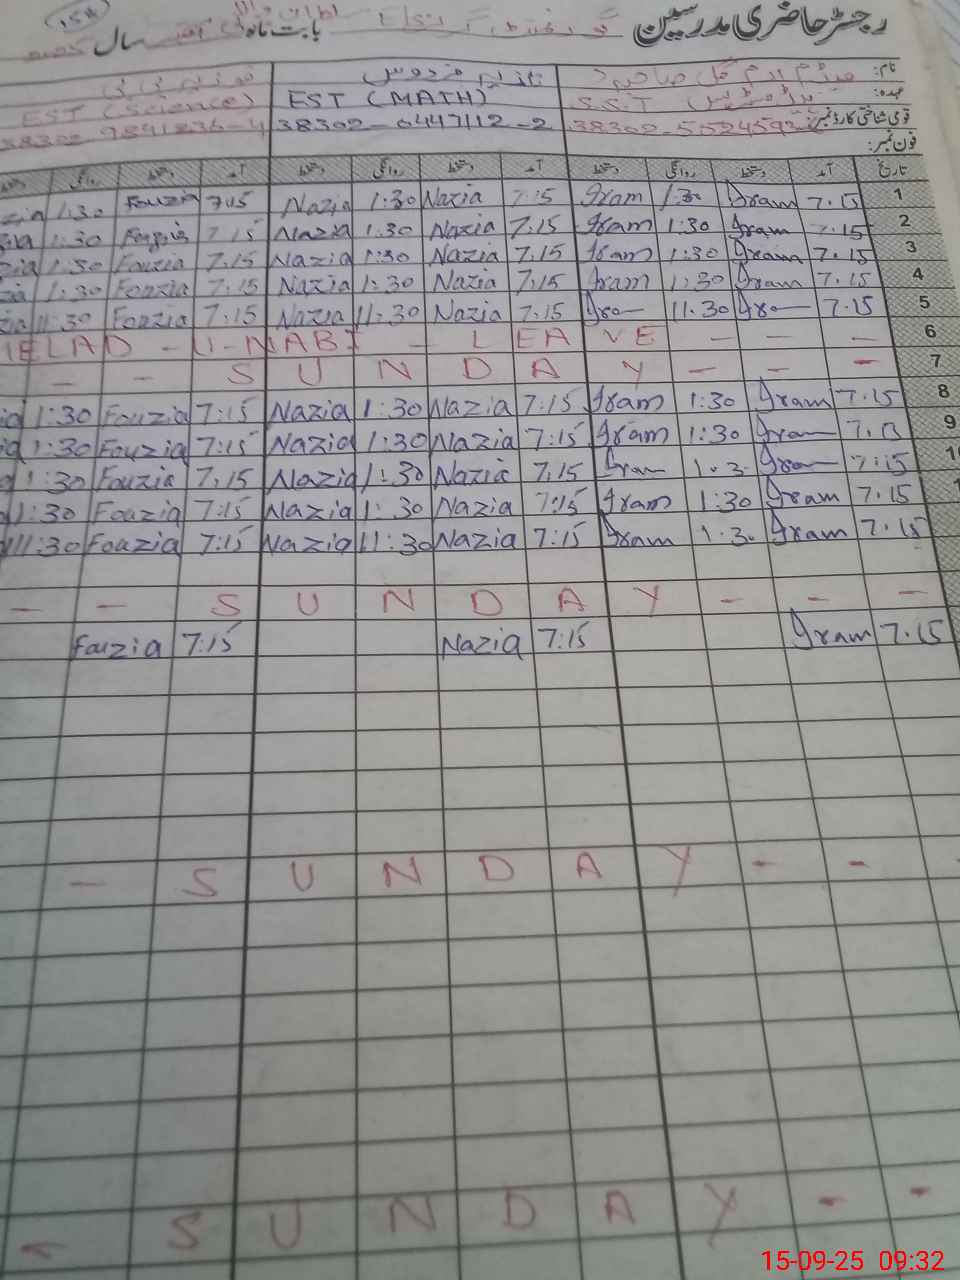 رجسٹر حاضری مدرسین بابت ماہ سال
نام:
EST (Science) EST (MATH) عہدہ: S.S.T
38302-9841236-4 38302-0447112-2 قومی شناختی کارڈ نمبر: 38302-5524593
فون نمبر:
دستخط روانگی دستخط آمد دستخط روانگی دستخط آمد دستخط روانگی دستخط آمد تاریخ
zia 1:30 Fouzia 7:15 Nazia 1:30 Nazia 7:15 Iram 1:30 Iram 7.15 1
1:30 Fouzia 7.15 Nazia 1:30 Nazia 7.15 Iram 1:30 Iram 7.15 2
zia 1:30 Fouzia 7.15 Nazia 1:30 Nazia 7.15 Iram 1:30 Iram 7.15 3
zia 1:30 Fouzia 7.15 Nazia 1:30 Nazia 7.15 Iram 1:30 Iram 7.15 4
zia 11:30 Fouzia 7.15 Nazia 11:30 Nazia 7.15 Iram 11.30 Iram 7.15 5
IELAD - U-NABI - LEAVE - - - 6
- - SUNDAY - - - 7
1:30 Fouzia 7:15 Nazia 1:30 Nazia 7:15 Iram 1:30 Iram 7.15 8
1:30 Fouzia 7:15 Nazia 1:30 Nazia 7:15 Iram 1:30 Iram 7.15 9
1:30 Fouzia 7.15 Nazia 1:30 Nazia 7.15 Iram 1.3 Iram 7:15
1:30 Fouzia 7:15 Nazia 1:30 Nazia 7:15 Iram 1:30 Iram 7.15
11:30 Fouzia 7:15 Nazia 11:30 Nazia 7:15 Iram 1.30 Iram 7.15
- - SUNDAY - - -
Fouzia 7:15 Nazia 7:15 Iram 7.15
- SUNDAY - - -
- SUNDAY - -
15-09-25 09:32